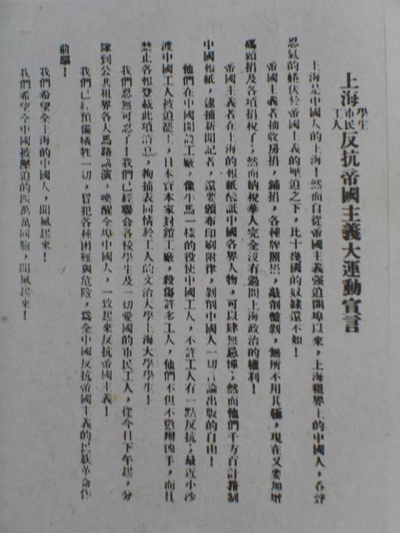 上海學生市民工人反抗帝國主義大運動宣言
上海是中國人的上海!然而自從帝國主義強迫開埠以來,上海租界上的中國人,吞聲
忍氣的蜷伏於帝國主義的壓迫之下,比十幾國的奴隸還不如!
帝國主義者抽收房捐,鋪捐,各種牌照捐,敲剝盤剝,無所不用其極,現在又要加增
碼頭捐及各項捐稅了;然而納稅華人完全沒有過問上海政治的權利!
帝國主義者在上海的報紙醜詆中國各界人物,可以肆無忌憚;然而他們千方百計箝制
中國報紙,逮捕新聞記者,還要頒布印刷附律,剝削中國人一切言論出版的自由!
他們在中國開設工廠,像牛馬一樣的役使中國工人,不許工人有一點反抗;最近小沙
渡中國工人被迫罷工,日本資本家封鎖工廠,殺傷許多工人,他們不但不懲辦凶手,而且
禁止各報登載此項消息,拘捕表同情於工人的文治大學上海大學學生!
我們忍無可忍了!我們已經聯合各校學生及一切愛國的市民工人,從今日下午起,分
隊到公共租界各大馬路講演,喚醒全埠中國人,一致起來反抗帝國主義!
我們已經預備犧牲一切,冒犯各種困難與危險,為全中國反抗帝國主義的民族革命作
前驅!
我們希望全上海的中國人,聞風起來!
我們希望全中國被壓迫的四萬萬同胞,聞風起來!